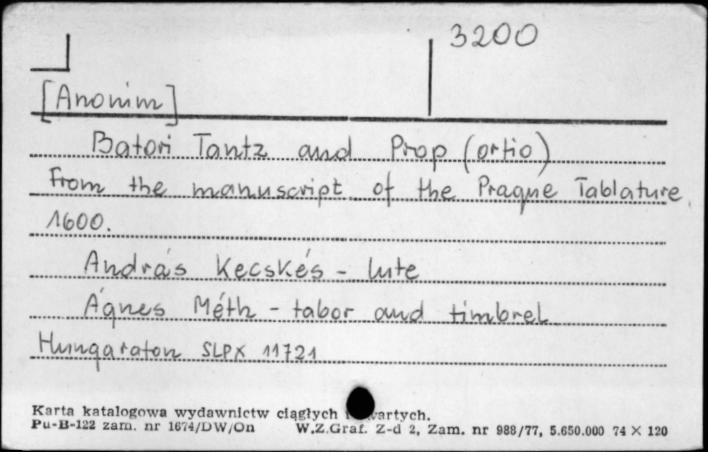 3200
[Anonim]
Batori Tantz and Prop (ortio)
From the manuscript of the Prague Tablature,
1600.
András Kecskés - lute
Ágnes Méth - tabor and timbrel
Hungaraton SLPX 11721
Karta katalogowa wydawnictw ciągłych i wartych.
Pu-B-122 zam. nr 1674/DW/On W.Z.Graf. Z-d 2, Zam. nr 988/77, 5.650.000 74 X 120